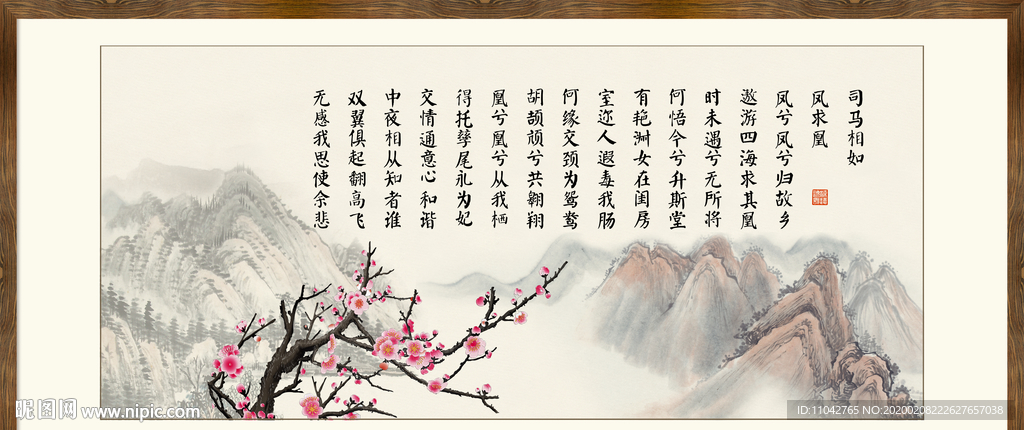 司马相如
凤求凰
凤兮凤兮归故乡
遨游四海求其凰
时未遇兮无所将
何悟今兮升斯堂
有艳淑女在闺房
室迩人遐毒我肠
何缘交颈为鸳鸯
胡颉颃兮共翱翔
凰兮凰兮从我栖
得托孳尾永为妃
交情通意心和谐
中夜相从知者谁
双翼俱起翻高飞
无感我思使余悲
昵图网 www.nipic.com
ID:11042765 NO:20200208222627657038